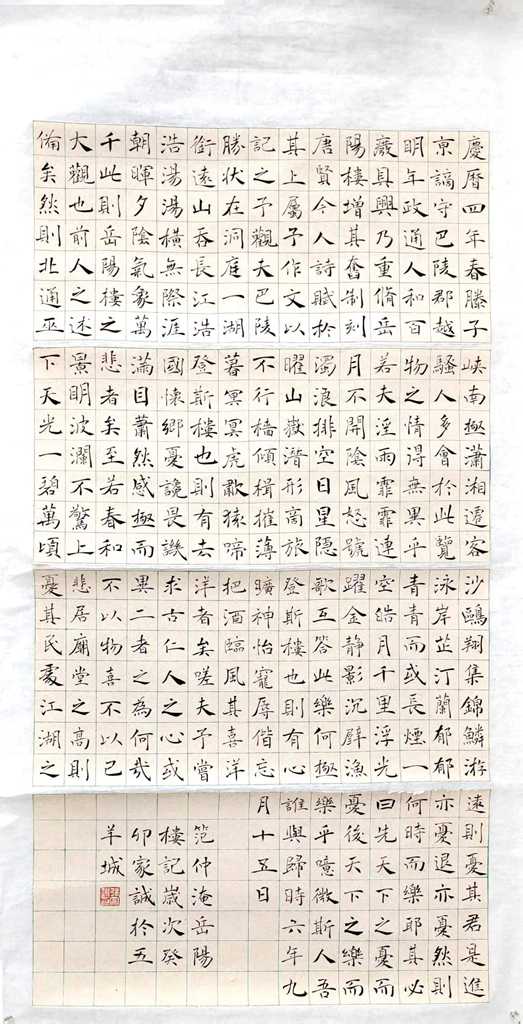 慶曆四年春滕子
京謫守巴陵郡越
明年政通人和百
廢具興乃重脩岳
陽樓增其舊制刻
唐賢今人詩賦於
其上屬予作文以
記之予觀夫巴陵
勝狀在洞庭一湖
銜遠山吞長江浩
浩湯湯橫無際涯
朝暉夕陰氣象萬
千此則岳陽樓之
大觀也前人之述
備矣然則北通巫
峽南極瀟湘遷客
騷人多會於此覽
物之情得無異乎
若夫淫雨霏霏連
月不開陰風怒號
濁浪排空日星隱
曜山嶽潛形商旅
不行檣傾楫摧薄
暮冥冥虎歗猿啼
登斯樓也則有去
國懷鄉憂讒畏譏
滿目蕭然感極而
悲者矣至若春和
景明波瀾不驚上
下天光一碧萬頃
沙鷗翔集錦鱗游
泳岸芷汀蘭郁郁
青青而或長煙一
空皓月千里浮光
躍金靜影沉璧漁
歌互答此樂何極
登斯樓也則有心
曠神怡寵辱偕忘
把酒臨風其喜洋
洋者矣嗟夫予嘗
求古仁人之心或
異二者之為何哉
不以物喜不以己
悲居廟堂之高則
憂其民處江湖之
遠則憂其君是進
亦憂退亦憂然則
何時而樂耶其必
曰先天下之憂而
憂後天下之樂而
樂乎噫微斯人吾
誰與歸時六年九
月十五日
范仲淹岳陽
樓記歲次癸
卯家誠於五
羊城